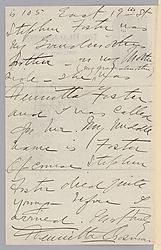 is 105 East 19th St
Stephen Foster was
my Grandmother's
Brother - on my Mother's
side - she was
Henrietta Foster
and I was called
for her. My middle
name is Foster
Stephen
Foster died quite
young before I
Henrietta